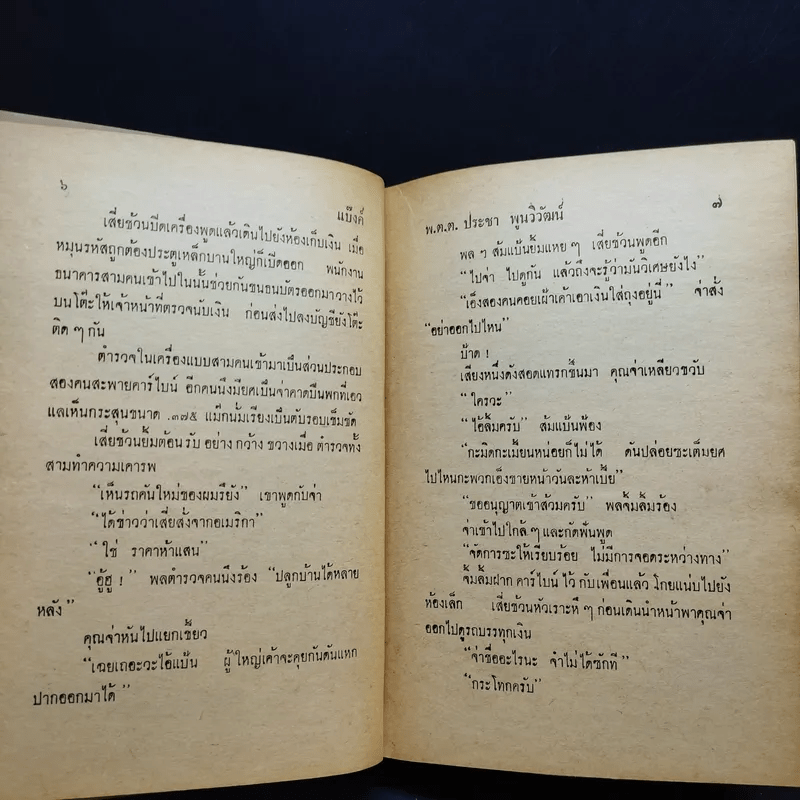 ๖
แบ๊งค์
เสี่ยช้วนปิดเครื่องพูดแล้วเดินไปยังห้องเก็บเงิน เมื่อ
หมุนรหัสถูกต้องประตูเหล็กบานใหญ่ก็เปิดออก พนักงาน
ธนาคารสามคนเข้าไปในนั้นช่วยกันขนธนบัตรออกมาวางไว้
บนโต๊ะให้เจ้าหน้าที่ตรวจนับเงิน ก่อนส่งไปลงบัญชียังโต๊ะ
ติด ๆ กัน
ตำรวจในเครื่องแบบสามคนเข้ามาเป็นส่วนประกอบ
สองคนสะพายคาร์ไบน์ อีกคนนึงมียศเป็นจ่าคาดปืนพกที่เอว
แลเห็นกระสุนขนาด .๓๗๕ แม๊กนั่มเรียงเป็นตับรอบเข็มขัด
เสี่ยช้วนยิ้มต้อนรับ อย่าง กว้าง ขวางเมื่อ ตำรวจทั้ง
สามทำความเคารพ
“เห็นรถคันใหม่ของผมรึยัง” เขาพูดกับจ่า
“ได้ข่าวว่าเสี่ยสั่งจากอเมริกา”
“ใช่ ราคาห้าแสน”
“อู้ฮู !” พลตำรวจคนนึงร้อง “ปลูกบ้านได้หลาย
หลัง”
คุณจ่าหันไปแยกเขี้ยว
“เฉยเถอะวะไอ้แป้น ผู้ใหญ่เค้าจะคุยกันดันแหก
ปากออกมาได้”
พ.ต.ต. ประชา พูนวิวัฒน์
๗
พล ฯ ส้มแป้นยิ้มแหย ๆ เสี่ยช้วนพูดอีก
“ไปจ่า ไปดูกัน แล้วถึงจะรู้ว่ามันวิเศษยังไง”
“เอ็งสองคนคอยเฝ้าเค้าเอาเงินใส่ถุงอยู่นี่” จ่าสั่ง
“อย่าออกไปไหน”
ป้าด !
เสียงหนึ่งดังสอดแทรกขึ้นมา คุณจ่าเหลียวขวับ
“ใครวะ”
“ไอ้ลิ้มครับ” ส้มแป้นฟ้อง
“กะมิดกะเมี้ยนหน่อยก็ไม่ได้ ดันปล่อยซะเต็มยศ
ไปไหนกะพวกเอ็งขายหน้าวันละห้าเบี้ย”
“ขออนุญาตเข้าส้วมครับ” พลจิ้มลิ้มร้อง
จ่าเข้าไปใกล้ ๆ และกัดฟันพูด
“จัดการซะให้เรียบร้อย ไม่มีการจอดระหว่างทาง”
จิ้มลิ้มฝาก คาร์ไบน์ ไว้ กับเพื่อนแล้ว โกยแน่บไปยัง
ห้องเล็ก เสี่ยช้วนหัวเราะหึ ๆ ก่อนเดินนำหน้าพาคุณจ่า
ออกไปดูรถบรรทุกเงิน
“จ่าชื่ออะไรนะ จำไม่ได้ซักที”
“กระโทกครับ”